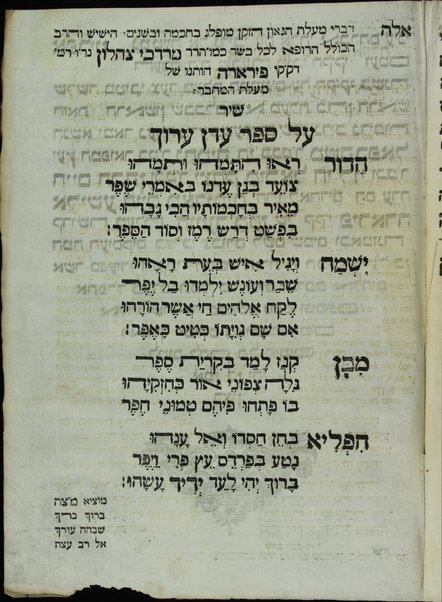 אלה דברי מעלת הגאון הזקן מופלג בחכמה ובשנים׃ הישיש והרב
הכולל הרופא לכל בשר כמהר״ר מרדכי צהלון נר״ו רמ״
דק״ק פיראדה חותנו של
מעלת המחבר׃
שיר
על ספר עדן ערוך
הדור רְאוּ הִתְמַהוּ וּתְמָהוּ
צוֹעֵד בְּגַן עֶדְנוֹ בְּאִמְרֵי שֶׁפֶר
מֵאִיר בְּחָכְמוֹתָיו הֲכִי גַבְהוּ
בִּפְשָׁט דְּרַשׁ רֶמֶז וְסוֹד הַסֵּפֶר׃
יִשְׂמַח וְיָגִיל אִישׁ בְּעֵת רָאָהוּ
שָׂכָר וָעוֹנֶשׁ יִלְמְדוּ בַל יֻפַר
לֶקַח אֱלֹהִים חַי אֲשֶׁר הוֹרָהוּ
אִם שָׂם גְּוִיָּתוֹ בְּטִיט בָּאֵפֶר׃
מִבֵּן קְנַז לָמַד בְּקִרְיַת סֵפֶר
נִלָּה צְפוּנֵי אוֹר בְּחִזְקִיָהוּ
בוֹ פָתְחוּ פִיהֶם טְמוּנֵי חֵפֶר
הִפְלִיא בְּחֵן חַסְדוֹ וְאֵל עָנָהוּ
נָטַע בְּפַרְדֵּס עֵץ פְּרִי וַיֶּפֶר
בָּרוּךְ יְהִי לָעַד יְדִיד עָשָׂהוּ׃
מוציא מ״צה
ברוך בריך
שבחה עורך
אל רב עצה